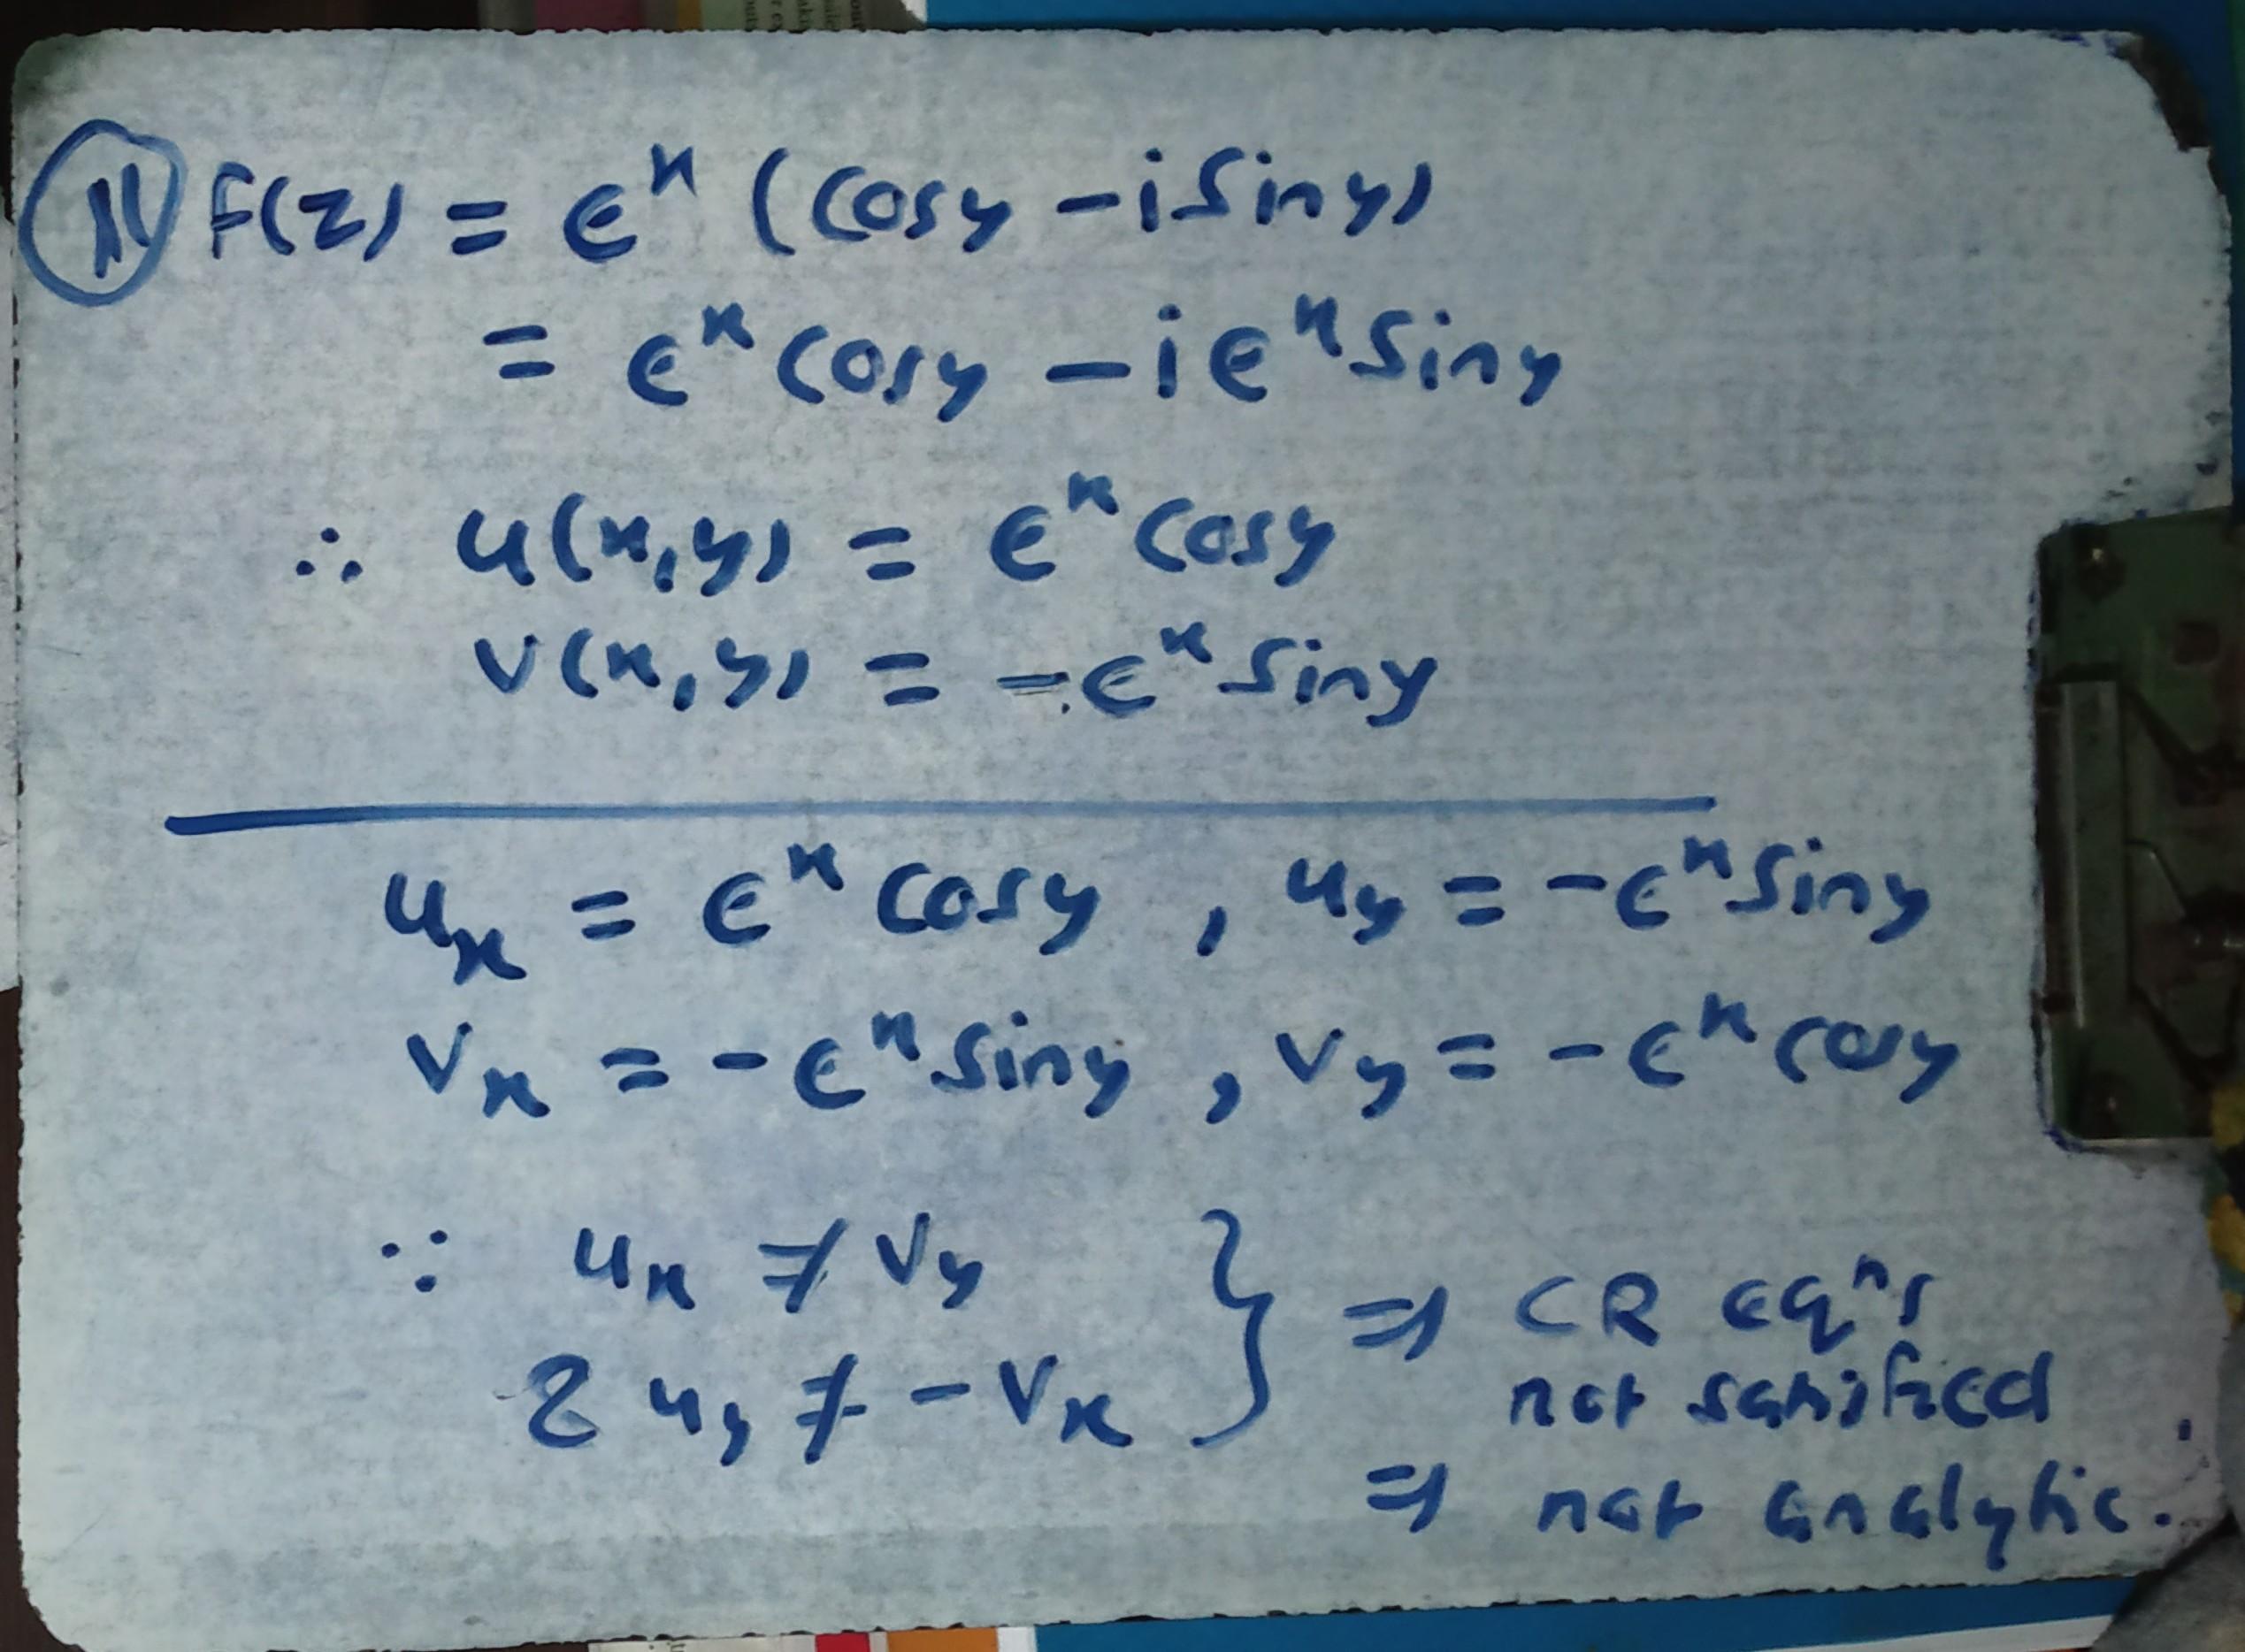 11 F(z) = e^x (cosy - i siny)
= e^x cosy - i e^x siny
∴ u(x,y) = e^x cosy
v(x,y) = -e^x siny
u_x = e^x cosy , u_y = -e^x siny
v_x = -e^x siny , v_y = -e^x cosy
∵ u_x ≠ v_y
& u_y ≠ -v_x } ⇒ CR eqⁿs
not satisfied
⇒ not analytic.